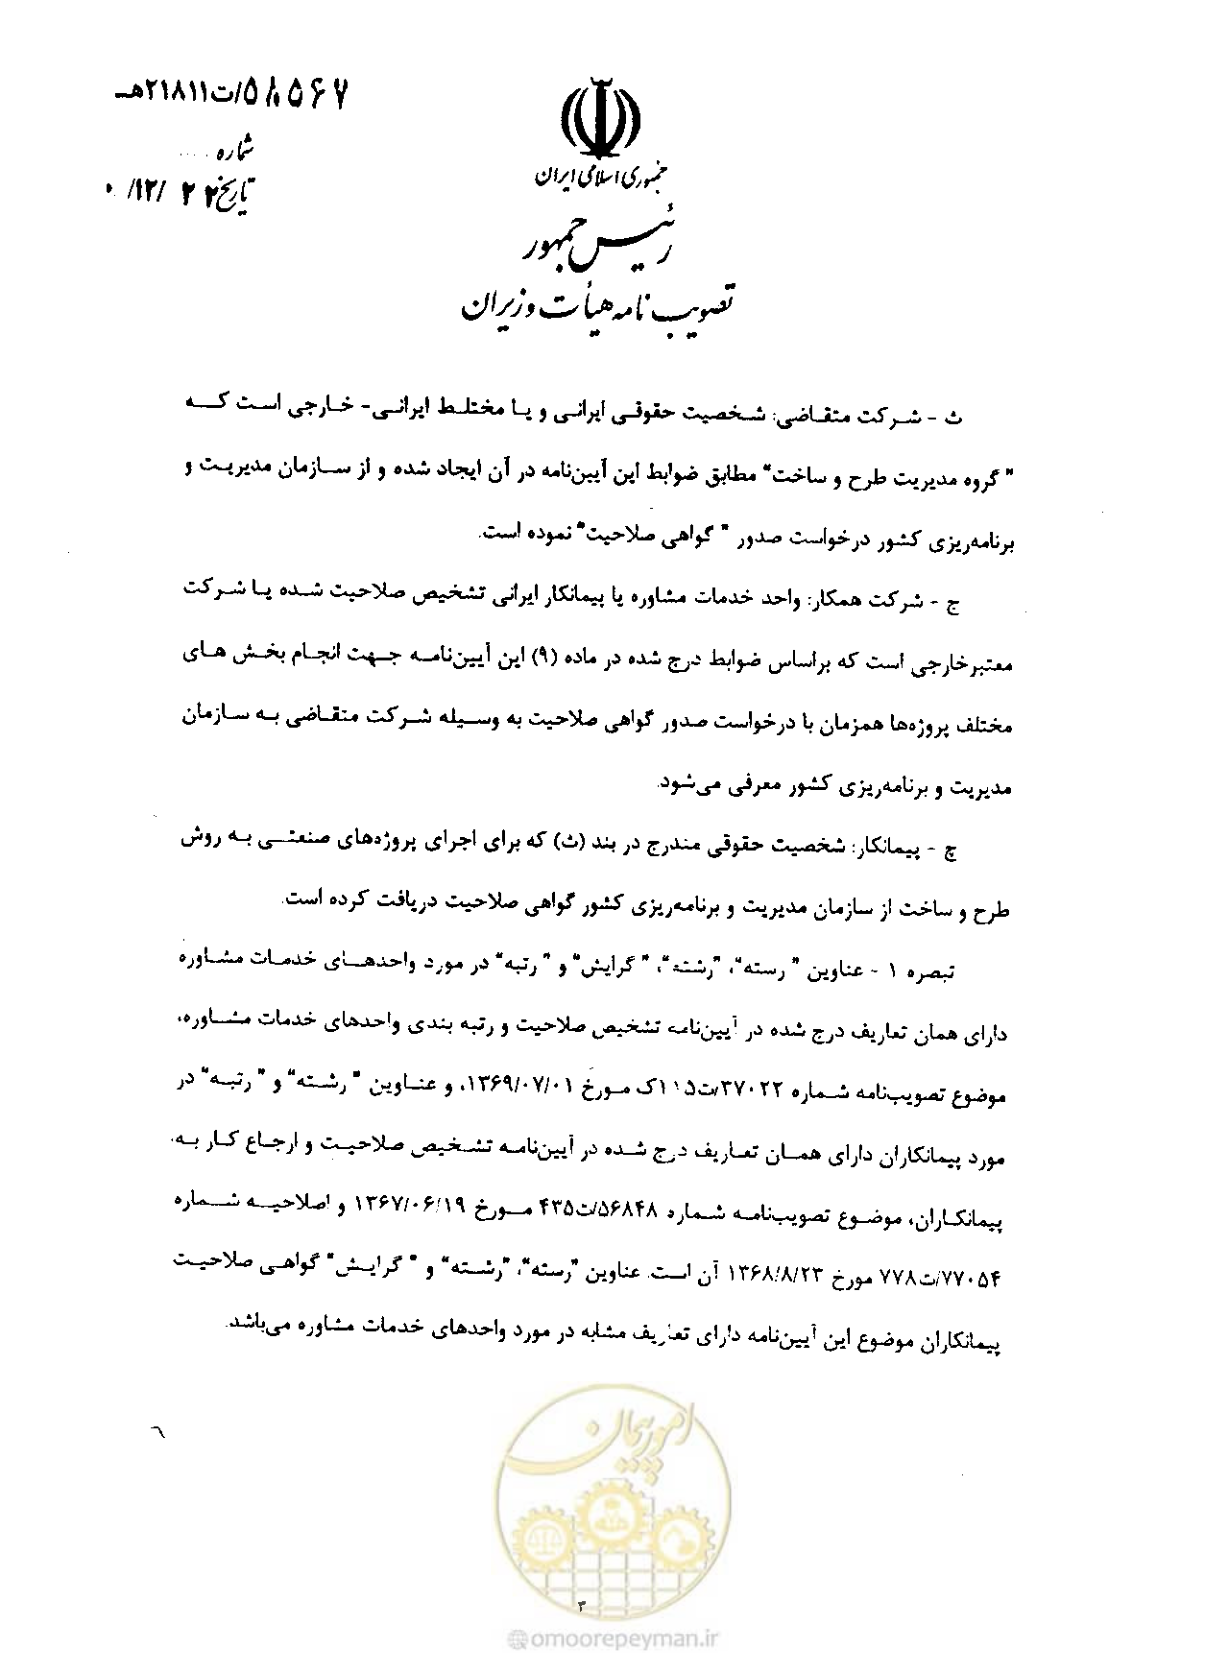 ۵۸۵۶۷/ت۲۱۸۱۱هـ
شماره
تاریخ ۲۲ /۱۲/ ۰
جمهوری اسلامی ایران
رئیس جمهور
تصویب نامه هیأت وزیران
ث - شرکت متقاضی: شخصیت حقوقی ایرانی و یا مختلط ایرانی- خارجی است که
" گروه مدیریت طرح و ساخت" مطابق ضوابط این آیین‌نامه در آن ایجاد شده و از سازمان مدیریت و
برنامه‌ریزی کشور درخواست صدور " گواهی صلاحیت" نموده است.
ج - شرکت همکار: واحد خدمات مشاوره یا پیمانکار ایرانی تشخیص صلاحیت شده یا شرکت
معتبرخارجی است که براساس ضوابط درج شده در ماده (۹) این آیین‌نامه جهت انجام بخش های
مختلف پروژه‌ها همزمان با درخواست صدور گواهی صلاحیت به وسیله شرکت متقاضی به سازمان
مدیریت و برنامه‌ریزی کشور معرفی می‌شود.
چ - پیمانکار: شخصیت حقوقی مندرج در بند (ث) که برای اجرای پروژه‌های صنعتی به روش
طرح و ساخت از سازمان مدیریت و برنامه‌ریزی کشور گواهی صلاحیت دریافت کرده است.
تبصره ۱ - عناوین " رسته"، "رشته"، " گرایش" و " رتبه" در مورد واحدهای خدمات مشاوره
دارای همان تعاریف درج شده در آیین‌نامه تشخیص صلاحیت و رتبه بندی واحدهای خدمات مشاوره،
موضوع تصویب‌نامه شماره ۳۷۰۲۲/ت۱۱۵ک مورخ ۱۳۶۹/۰۷/۰۱، و عناوین " رشته" و " رتبه" در
مورد پیمانکاران دارای همان تعاریف درج شده در آیین‌نامه تشخیص صلاحیت و ارجاع کار به
پیمانکاران، موضوع تصویب‌نامه شماره ۵۶۸۴۸/ت۴۳۵ مورخ ۱۳۶۷/۰۶/۱۹ و اصلاحیه شماره
۷۷۰۵۴/ت۷۷۸ مورخ ۱۳۶۸/۸/۲۳ آن است. عناوین "رسته"، "رشته" و " گرایش" گواهی صلاحیت
پیمانکاران موضوع این آیین‌نامه دارای تعاریف مشابه در مورد واحدهای خدمات مشاوره می‌باشد.
امور پیمان
۳
@omoorepeyman.ir